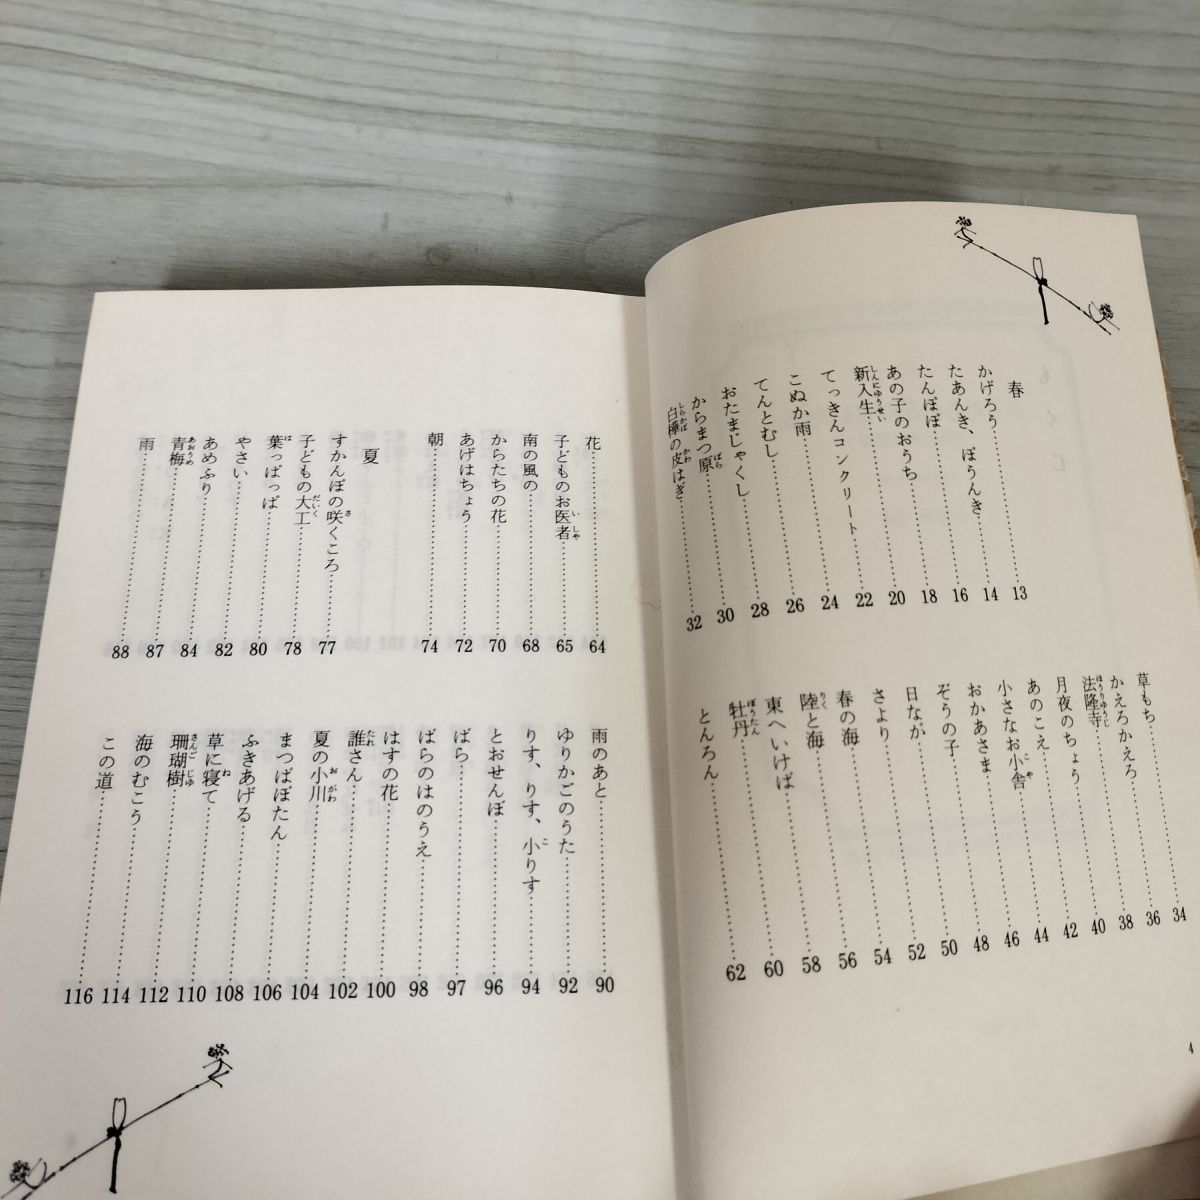 春
かげろう……13
たあんき、ぽうんき……14
たんぽぽ……16
あの子のおうち……18
しんにゅうせい
新入生……20
てっきんコンクリート……22
こぬか雨……24
てんとむし……26
おたまじゃくし……28
ばら
からまつ原……30
しらかば かわ
白樺の皮はぎ……32
草もち……34
かえろかえろ……36
ほうりゅうじ
法隆寺……38
月夜のちょう……40
あのこえ……42
こや
小さなお小舎……44
おかあさま……46
ぞうの子……48
日なが……50
さより……52
春の海……54
りく
陸と海……56
東へいけば……58
ぼうたん
牡丹……60
とんろん……62
4
花……64
いしゃ
子どものお医者……65
南の風の……68
からたちの花……70
あげはちょう……72
朝……74
夏
さ
すかんぽの咲くころ……77
だいく
子どもの大工……78
は
葉っぱっぱ……80
やさい……82
あめふり……84
あおうめ
青梅……87
雨……88
雨のあと……90
ゆりかごのうた……92
こ
りす、りす、小りす……94
とおせんぼ……96
ばら……97
ばらのはのうえ……98
はすの花……100
たれ
誰さん……102
おがわ
夏の小川……104
まつばぼたん……106
ふきあげる……108
ね
草に寝て……110
さんごじゅ
珊瑚樹……112
海のむこう……114
この道……116